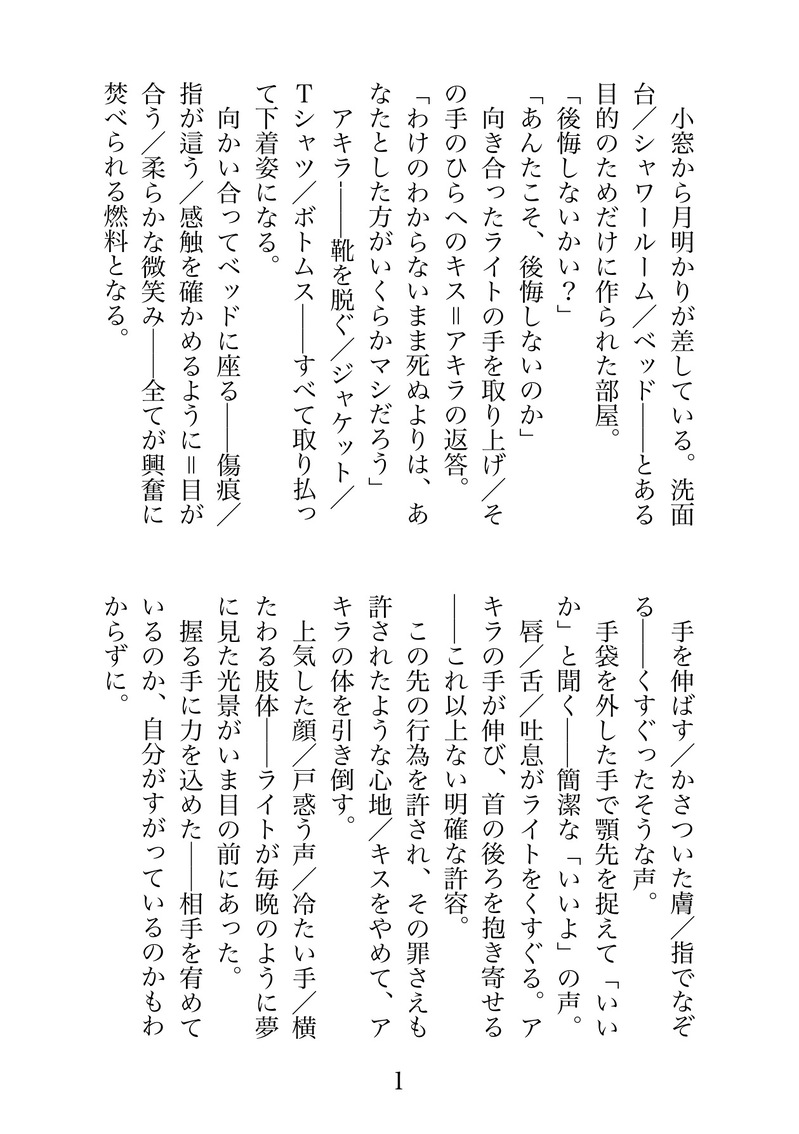 小窓から月明かりが差している。洗面
台／シャワールーム／ベッド――とある
目的のためだけに作られた部屋。
「後悔しないかい？」
「あんたこそ、後悔しないのか」
　向き合ったライトの手を取り上げ／そ
の手のひらへのキス＝アキラの返答。
「わけのわからないまま死ぬよりは、あ
なたとした方がいくらかマシだろう」
　アキラ――靴を脱ぐ／ジャケット／
Ｔシャツ／ボトムス――すべて取り払っ
て下着姿になる。
　向かい合ってベッドに座る――傷痕／
指が這う／感触を確かめるように＝目が
合う／柔らかな微笑み――全てが興奮に
焚べられる燃料となる。
　手を伸ばす／かさついた膚／指でなぞ
る――くすぐったそうな声。
　手袋を外した手で顎先を捉えて「いい
か」と聞く――簡潔な「いいよ」の声。
　唇／舌／吐息がライトをくすぐる。ア
キラの手が伸び、首の後ろを抱き寄せる
――これ以上ない明確な許容。
　この先の行為を許され、その罪さえも
許されたような心地／キスをやめて、ア
キラの体を引き倒す。
　上気した顔／戸惑う声／冷たい手／横
たわる肢体――ライトが毎晩のように夢
に見た光景がいま目の前にあった。
　握る手に力を込めた――相手を宥めて
いるのか、自分がすがっているのかもわ
からずに。
1